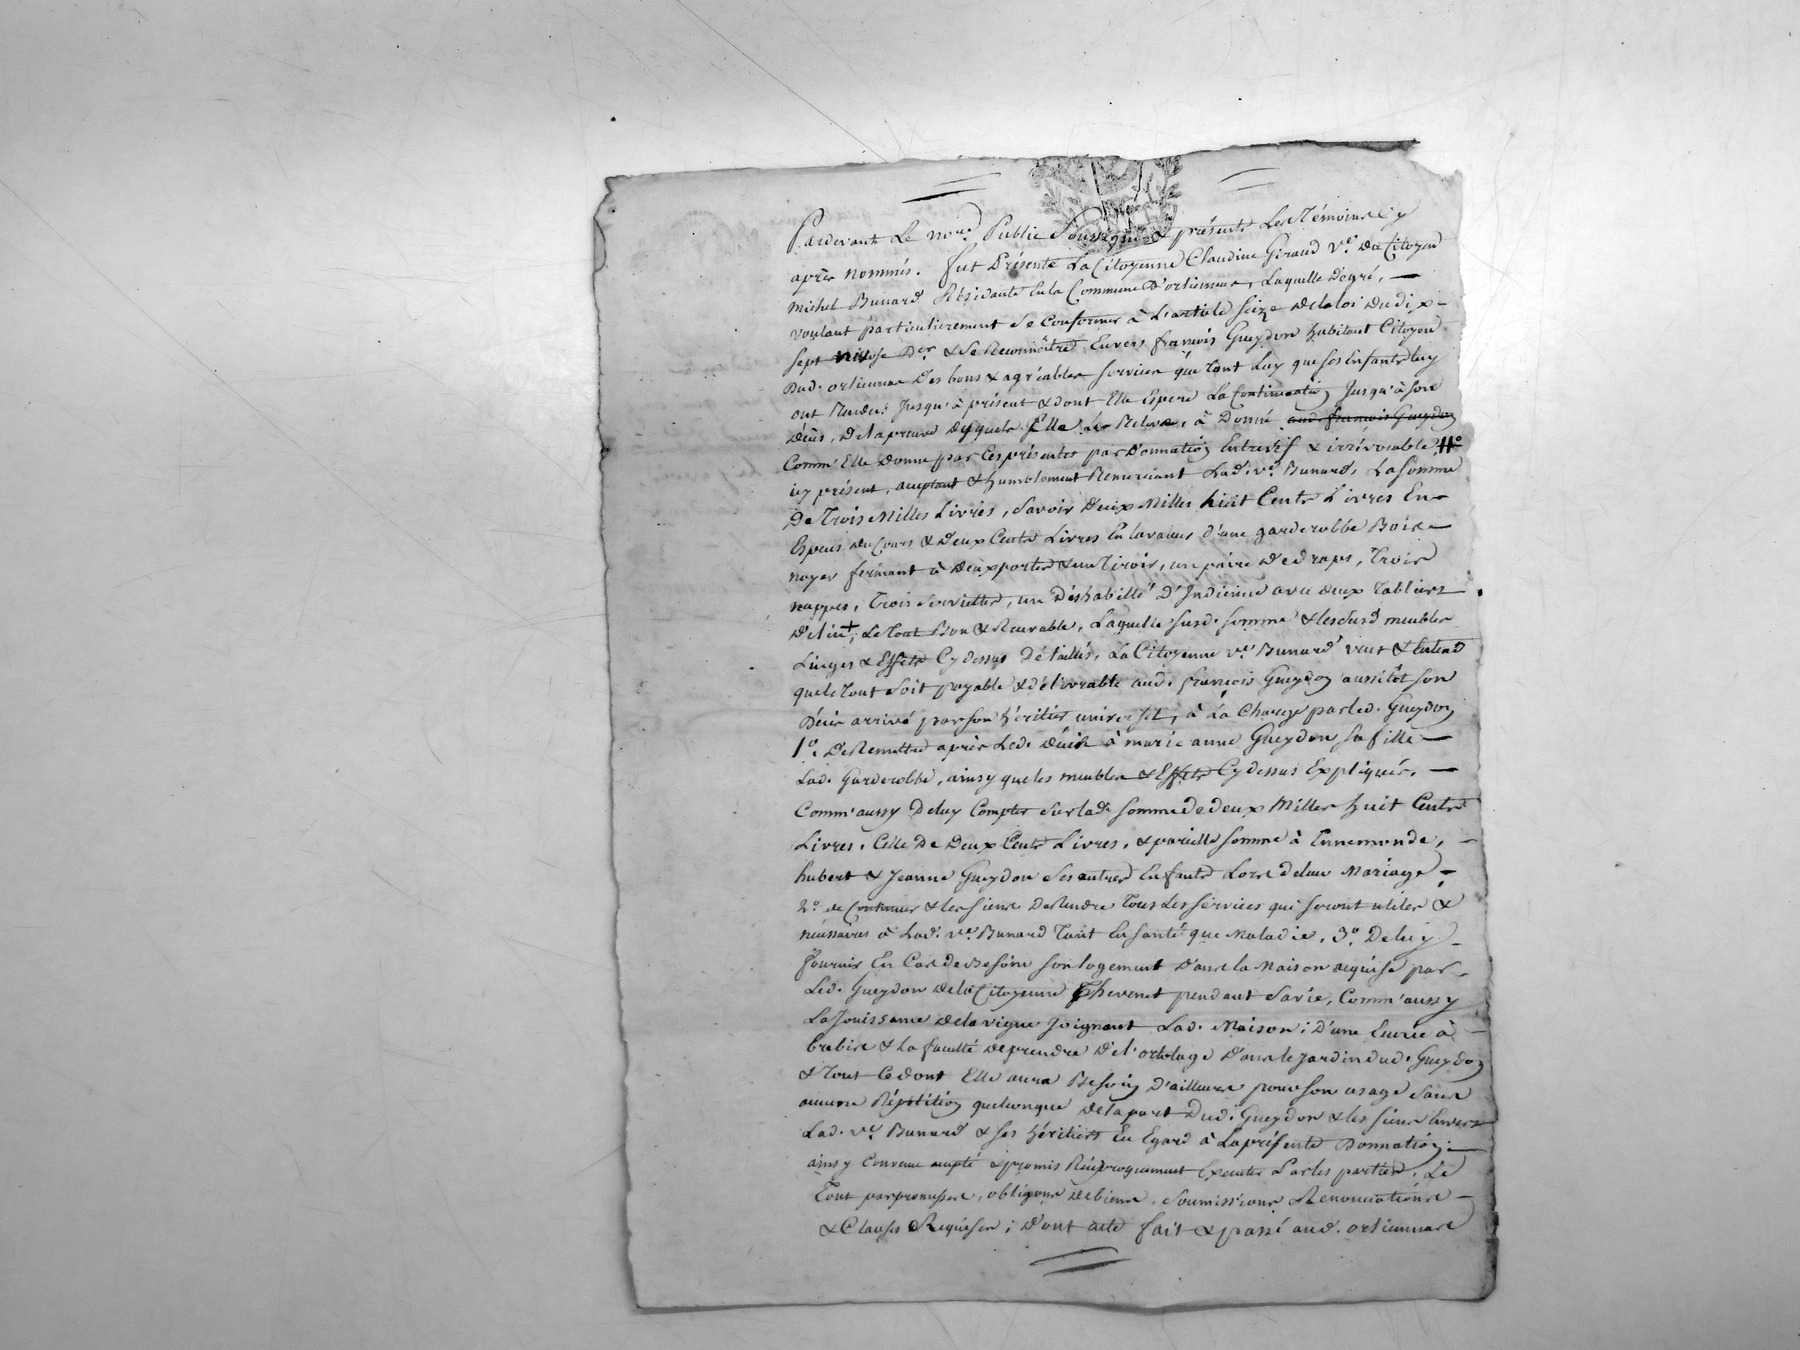 Pardevant Le No.re Public Soussigné & présents Les Témoins Cy
après nommés. fut Présente La Citoyenne Claudine Giraud v.e du Citoyen
Michel Bunard Résidante En la Commune D'orliennas, Laquelle De gré, —
voulant particulierement se conformer à L'article seize de la loi du dix-
sept nivose D.er & se Reconnoître Envers françois Gueydon habitant Citoyen
Dud. orliennas Des bons & agréables services que tant Luy que ses Enfants luy
ont Rendus jusqu'à présent & dont Elle Espere La Continuation jusqu'à son
décès, De la preuve desquels Elle les Releve, à Donné aud. françois Gueydon
Comm'Elle donne par Ces présentes par Donnation Entrevif & irrévocable
icy présent, acceptant & humblement Remerciant Lad. v.e Bunard, La somme
De Trois Milles Livres, savoir deux Milles huit Cents Livres En
Espèces du Cours & deux Cents Livres En la valeur d'une garderobbe Bois
noyer fermant à deux portes & un Tiroir, un paire de draps, Trois
nappes, Trois serviettes, un déshabillé D'Indienne avec deux Tabliers
de lin +, Le Tout Bon & Recevable, Laquelle susd. somme & les susd meubles
Linges & Effets Cy dessus Détaillés, La Citoyenne v.e Bunard veut & Entend
que le tout soit payable & délivrable aud. françois Gueydon aussitôt son
Décès arrivé par son héritier universel, à La Charge par led. Gueydon
1.o De Remettre après Led. décès à marie anne Gueydon sa fille —
Lad. Garderobbe, ainsy que les meubles & Effets Cy dessus Expliqués. —
Comm'aussy De luy Compter sur lad. somme de deux Milles huit Cents
Livres. Celle De Deux Cents Livres, & pareille somme à Ennemonde, —
hubert & Jeanne Gueydon ses autres Enfants Lors de leur Mariage —
2.o de Continuer & les siens De Rendre Tous Les services qui seront utiles &
nécessaires à Lad. v.e Bunard Tant En santé que Maladie. 3.o De luy
fournir En Cas de Besoin son logement dans la Maison acquise par
Led. Gueydon de la Citoyenne Thevenet pendant sa vie, Comm'aussy
La Jouissance de la vigne Joignant Lad. Maison; D'une Ecurie à —
brebis & La faculté de prendre de l'ortolage dans le Jardin dud. Gueydon
& Tout Ce dont Elle aura Besoin d'ailleurs pour son usage sans
aucune Répétition quelconque de la part Dud. Gueydon & les siens Envers
Lad. v.e Bunard & ses héritiers En Egard à La présente Donnation. —
ainsy Convenu accepté & promis Réciproquement Executer Par les parties. Le
Tout par promesses, obligations de biens, soumissions, Renonciations —
& Clauses Requises; d'ont acte fait & passé aud. orliennas